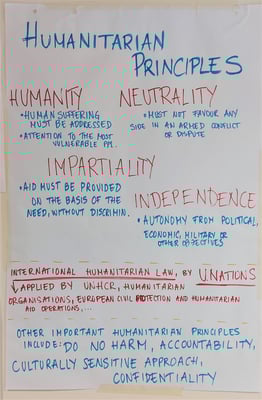 HUMANITARIAN
PRINCIPLES
HUMANITY
• HUMAN SUFFERING
MUST BE ADDRESSED
• ATTENTION TO THE MOST
VULNERABLE PPL.
NEUTRALITY
• MUST NOT FAVOUR ANY
SIDE IN AN ARMED CONFLICT
OR DISPUTE
IMPARTIALITY
• AID MUST BE PROVIDED
ON THE BASIS OF THE
NEED, WITHOUT DISCRIMIN.
INDEPENDENCE
• AUTONOMY FROM POLITICAL,
ECONOMIC, MILITARY OR
OTHER OBJECTIVES
INTERNATIONAL HUMANITARIAN LAW, BY U.NATIONS
↳ APPLIED BY UNHCR, HUMANITARIAN
ORGANISATIONS, EUROPEAN CIVIL PROTECTION AND HUMANITARIAN
AID OPERATIONS,...
OTHER IMPORTANT HUMANITARIAN PRINCIPLES
INCLUDE: DO NO HARM, ACCOUNTABILITY,
CULTURALLY SENSITIVE APPROACH,
CONFIDENTIALITY